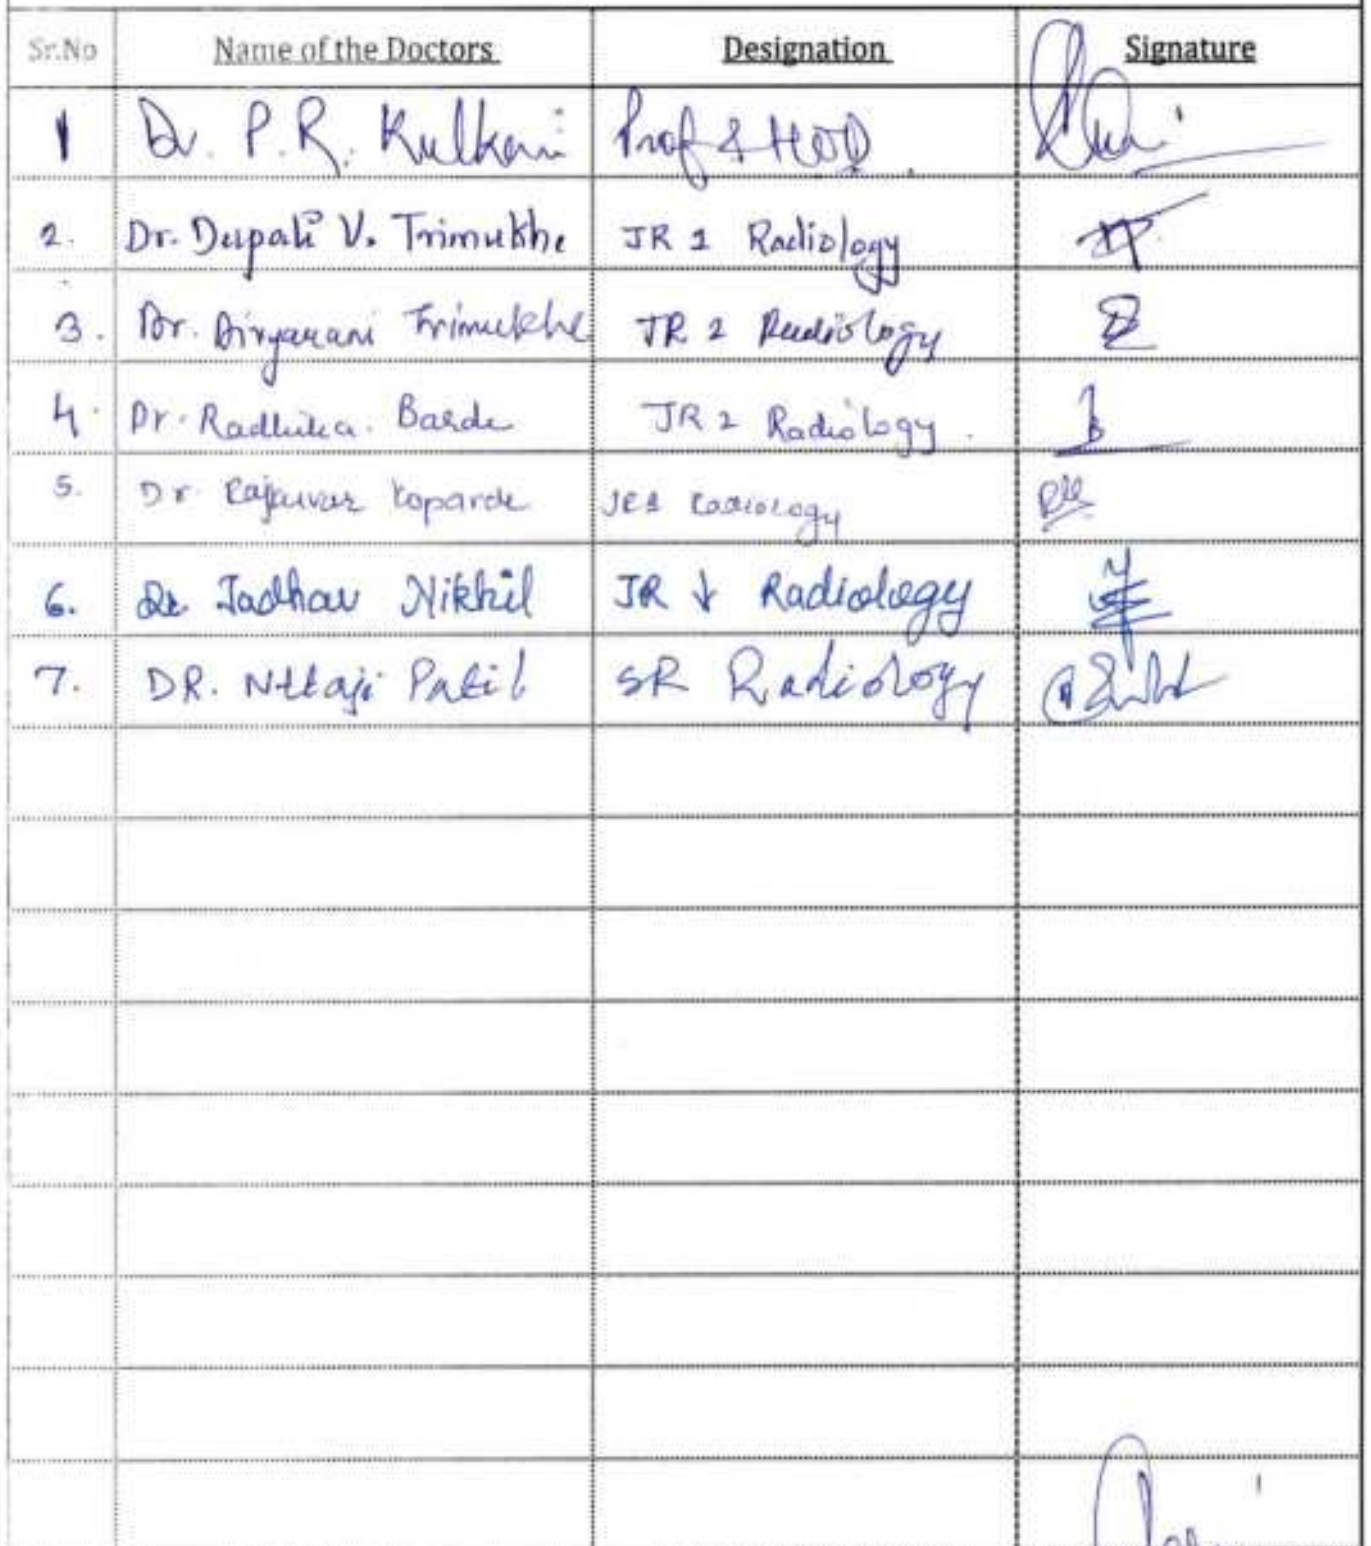 Sr.No Name of the Doctors Designation Signature
1 Dr. P. R. Kulkarni Prof & HOD.
2. Dr. Deepali V. Trimukhe JR 2 Radiology
3. Dr. Divyarani Trimukhe JR 2 Radiology
4. Dr. Radhika. Barde JR 2 Radiology.
5. Dr. Koparde JR1 Radiology
6. Dr Jadhav Nikhil JR 1 Radiology
7. DR. Netaji Patil SR Radiology